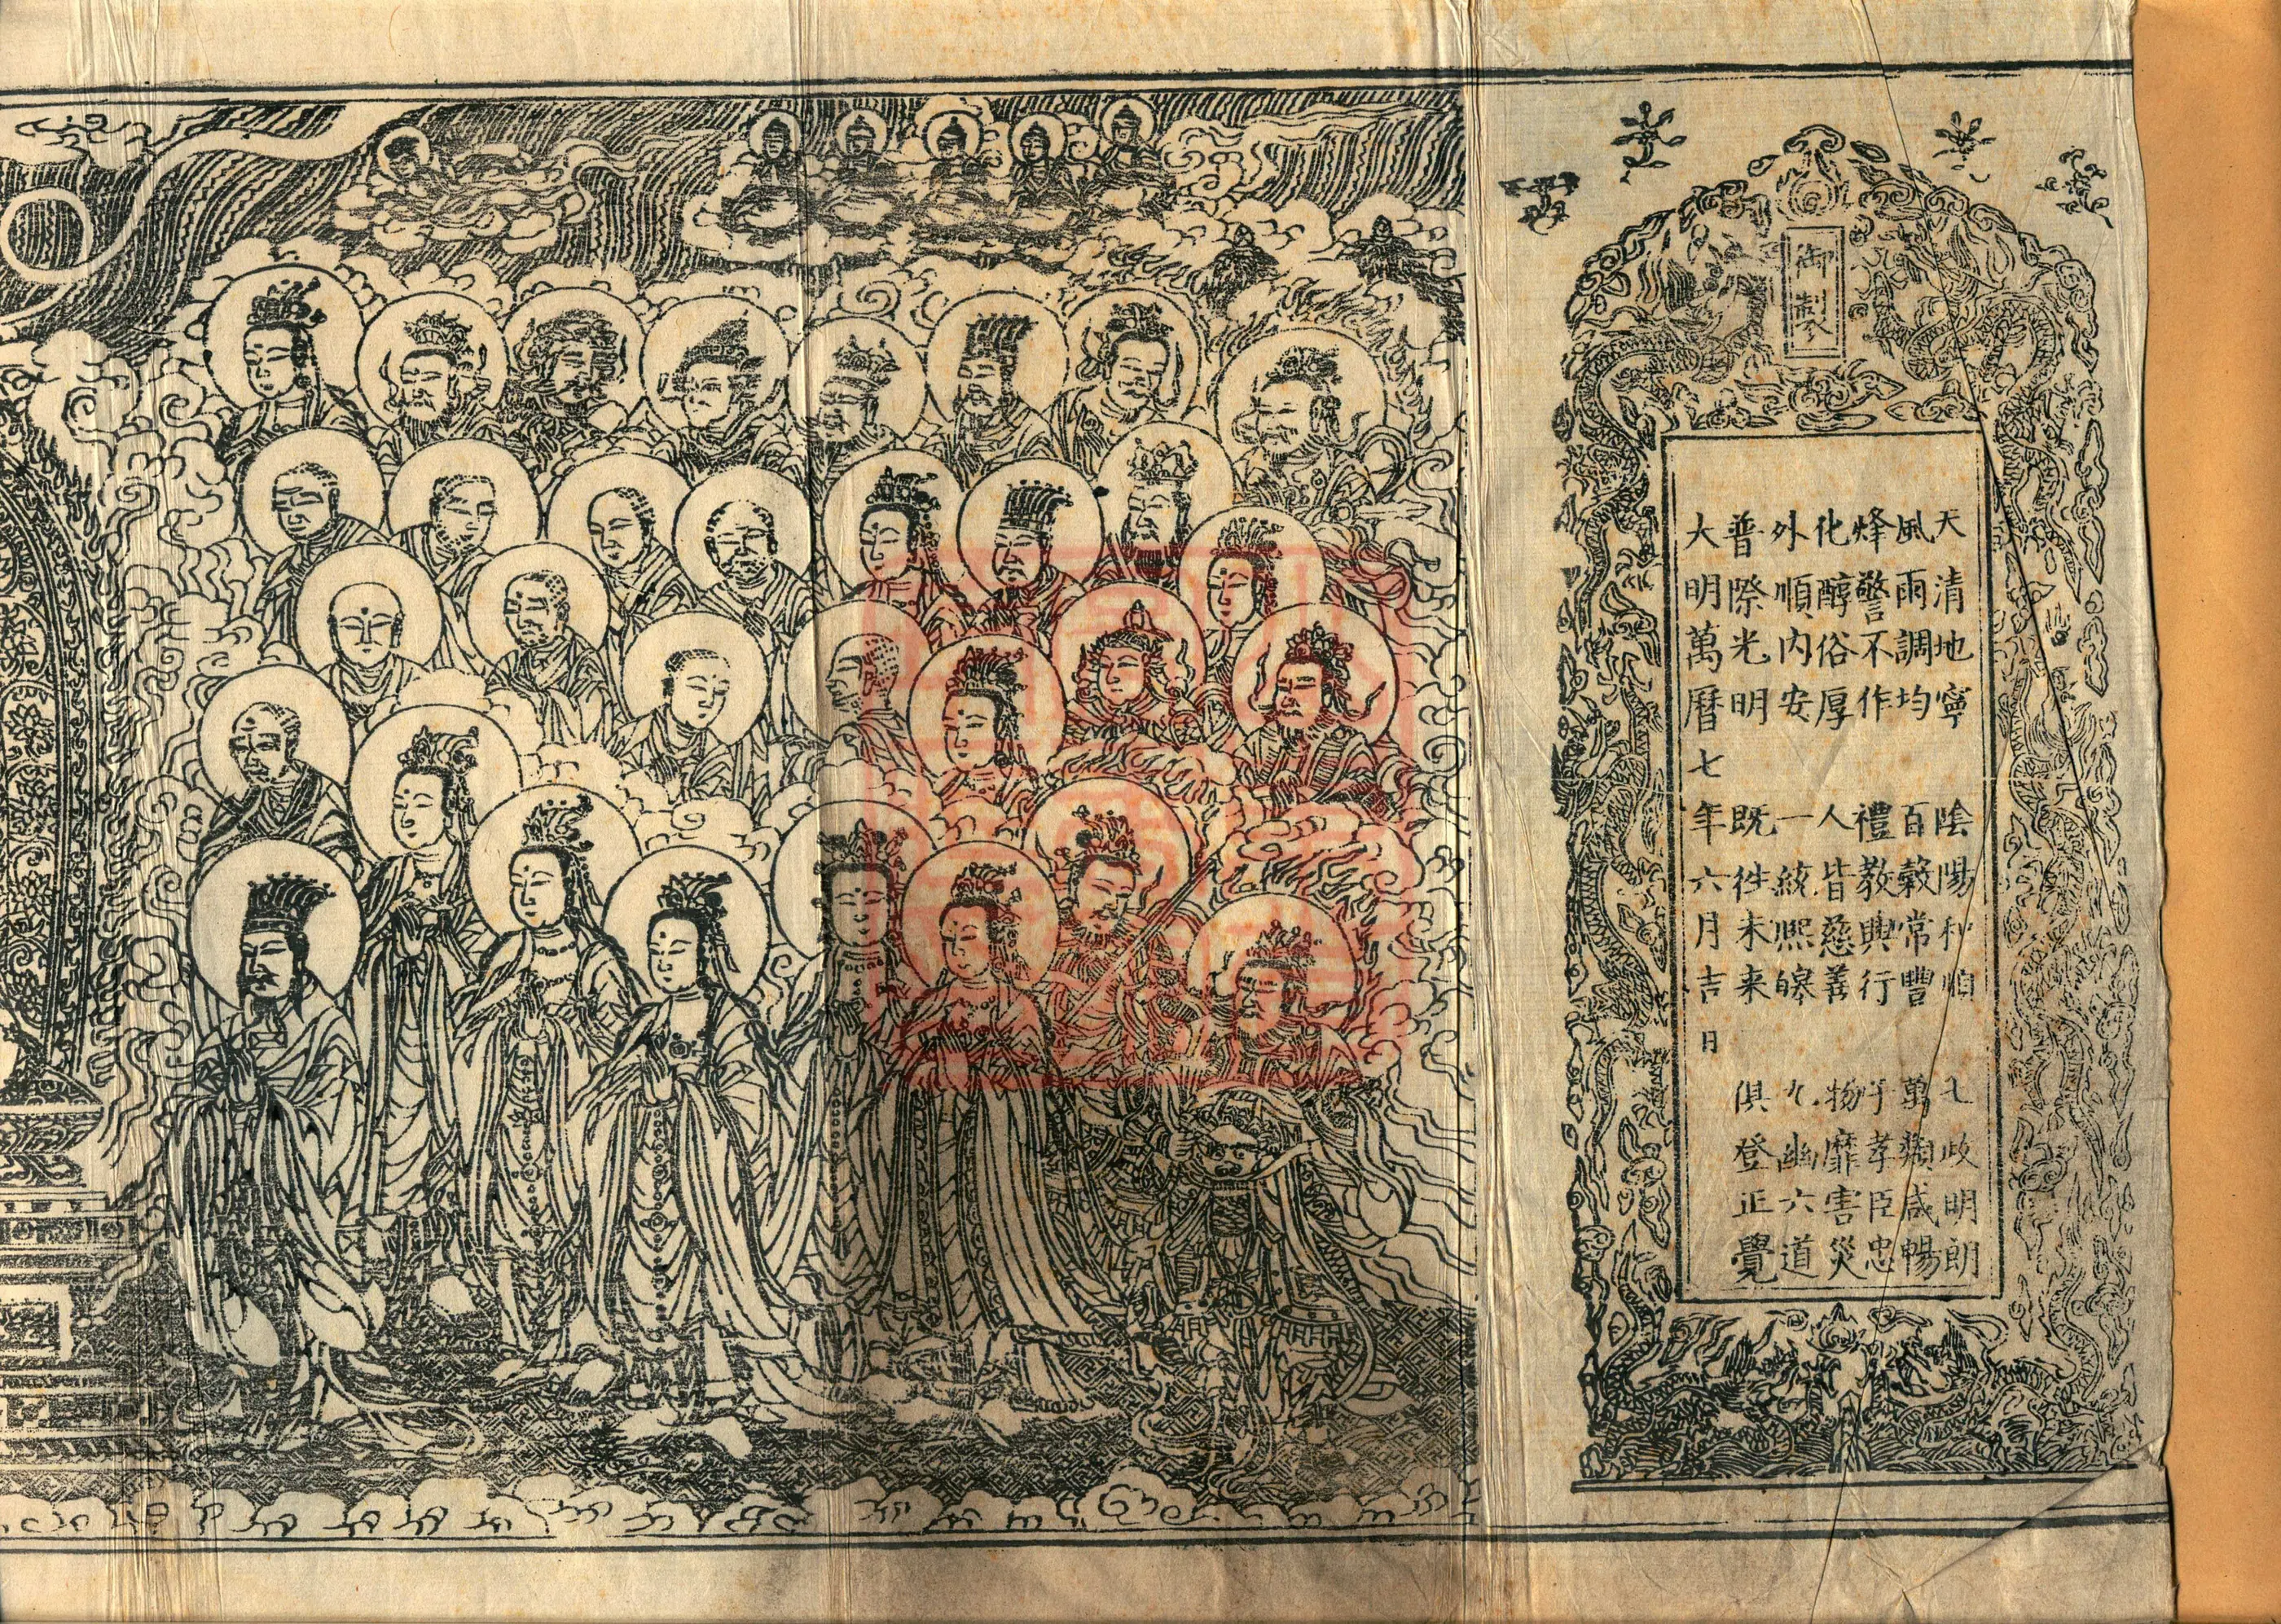 御製
天清地寧 陰陽和順 七政明朗
風雨調均 百穀常豐 萬類咸暢
烽警不作 禮教興行 子孝臣忠
化醇俗厚 人皆慈善 物靡害災
外順内安 一統熙皞 九幽六道
普際光明 既往未来 俱登正覺
大明萬曆七年六月吉日